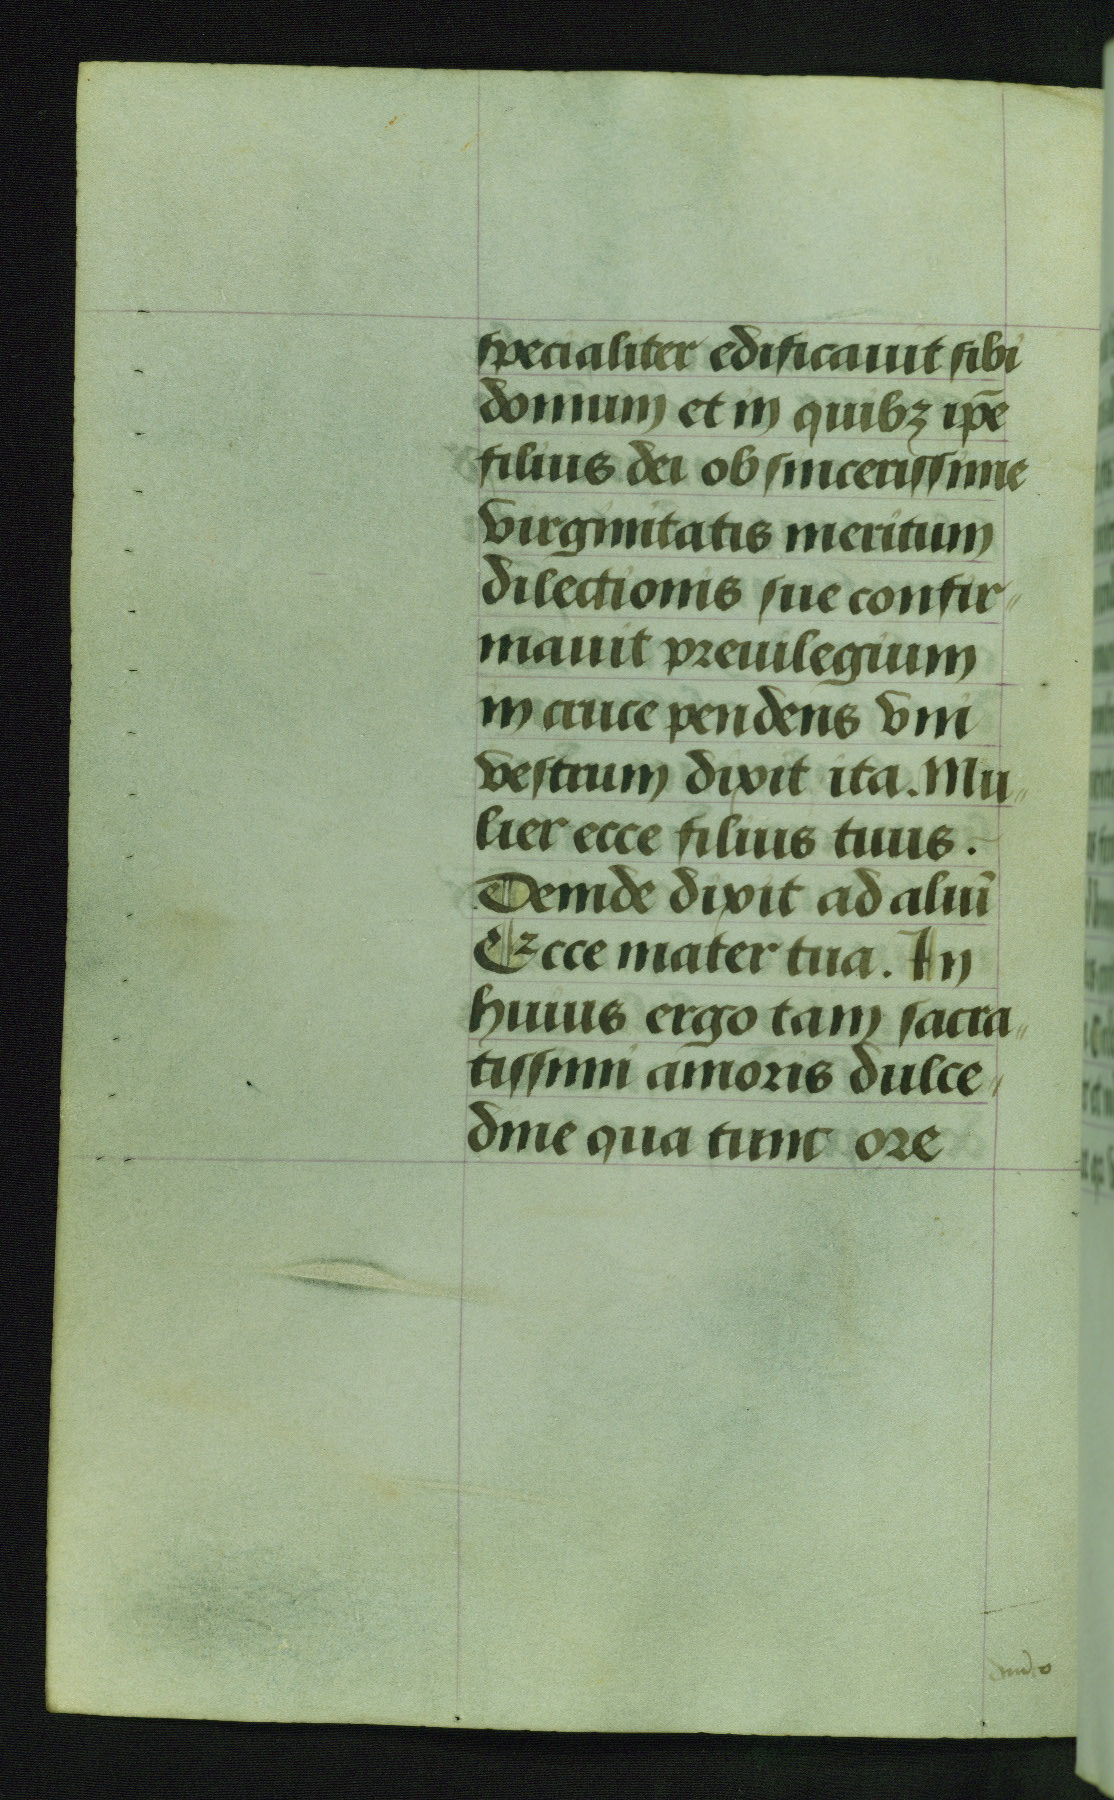 specialiter edificauit sibi
domum et in quibꝫ ip̄e
filius dei ob sincerissime
virginitatis meritum
dilectionis sue confir〃
mauit preuilegium
in cruce pendens vni
vestrum dixit ita. Mu〃
lier ecce filius tuus.
Deinde dixit ad aliū
Ecce mater tua. In
huius ergo tam sacra〃
tissimi amoris dulce〃
dine qua tunc ore